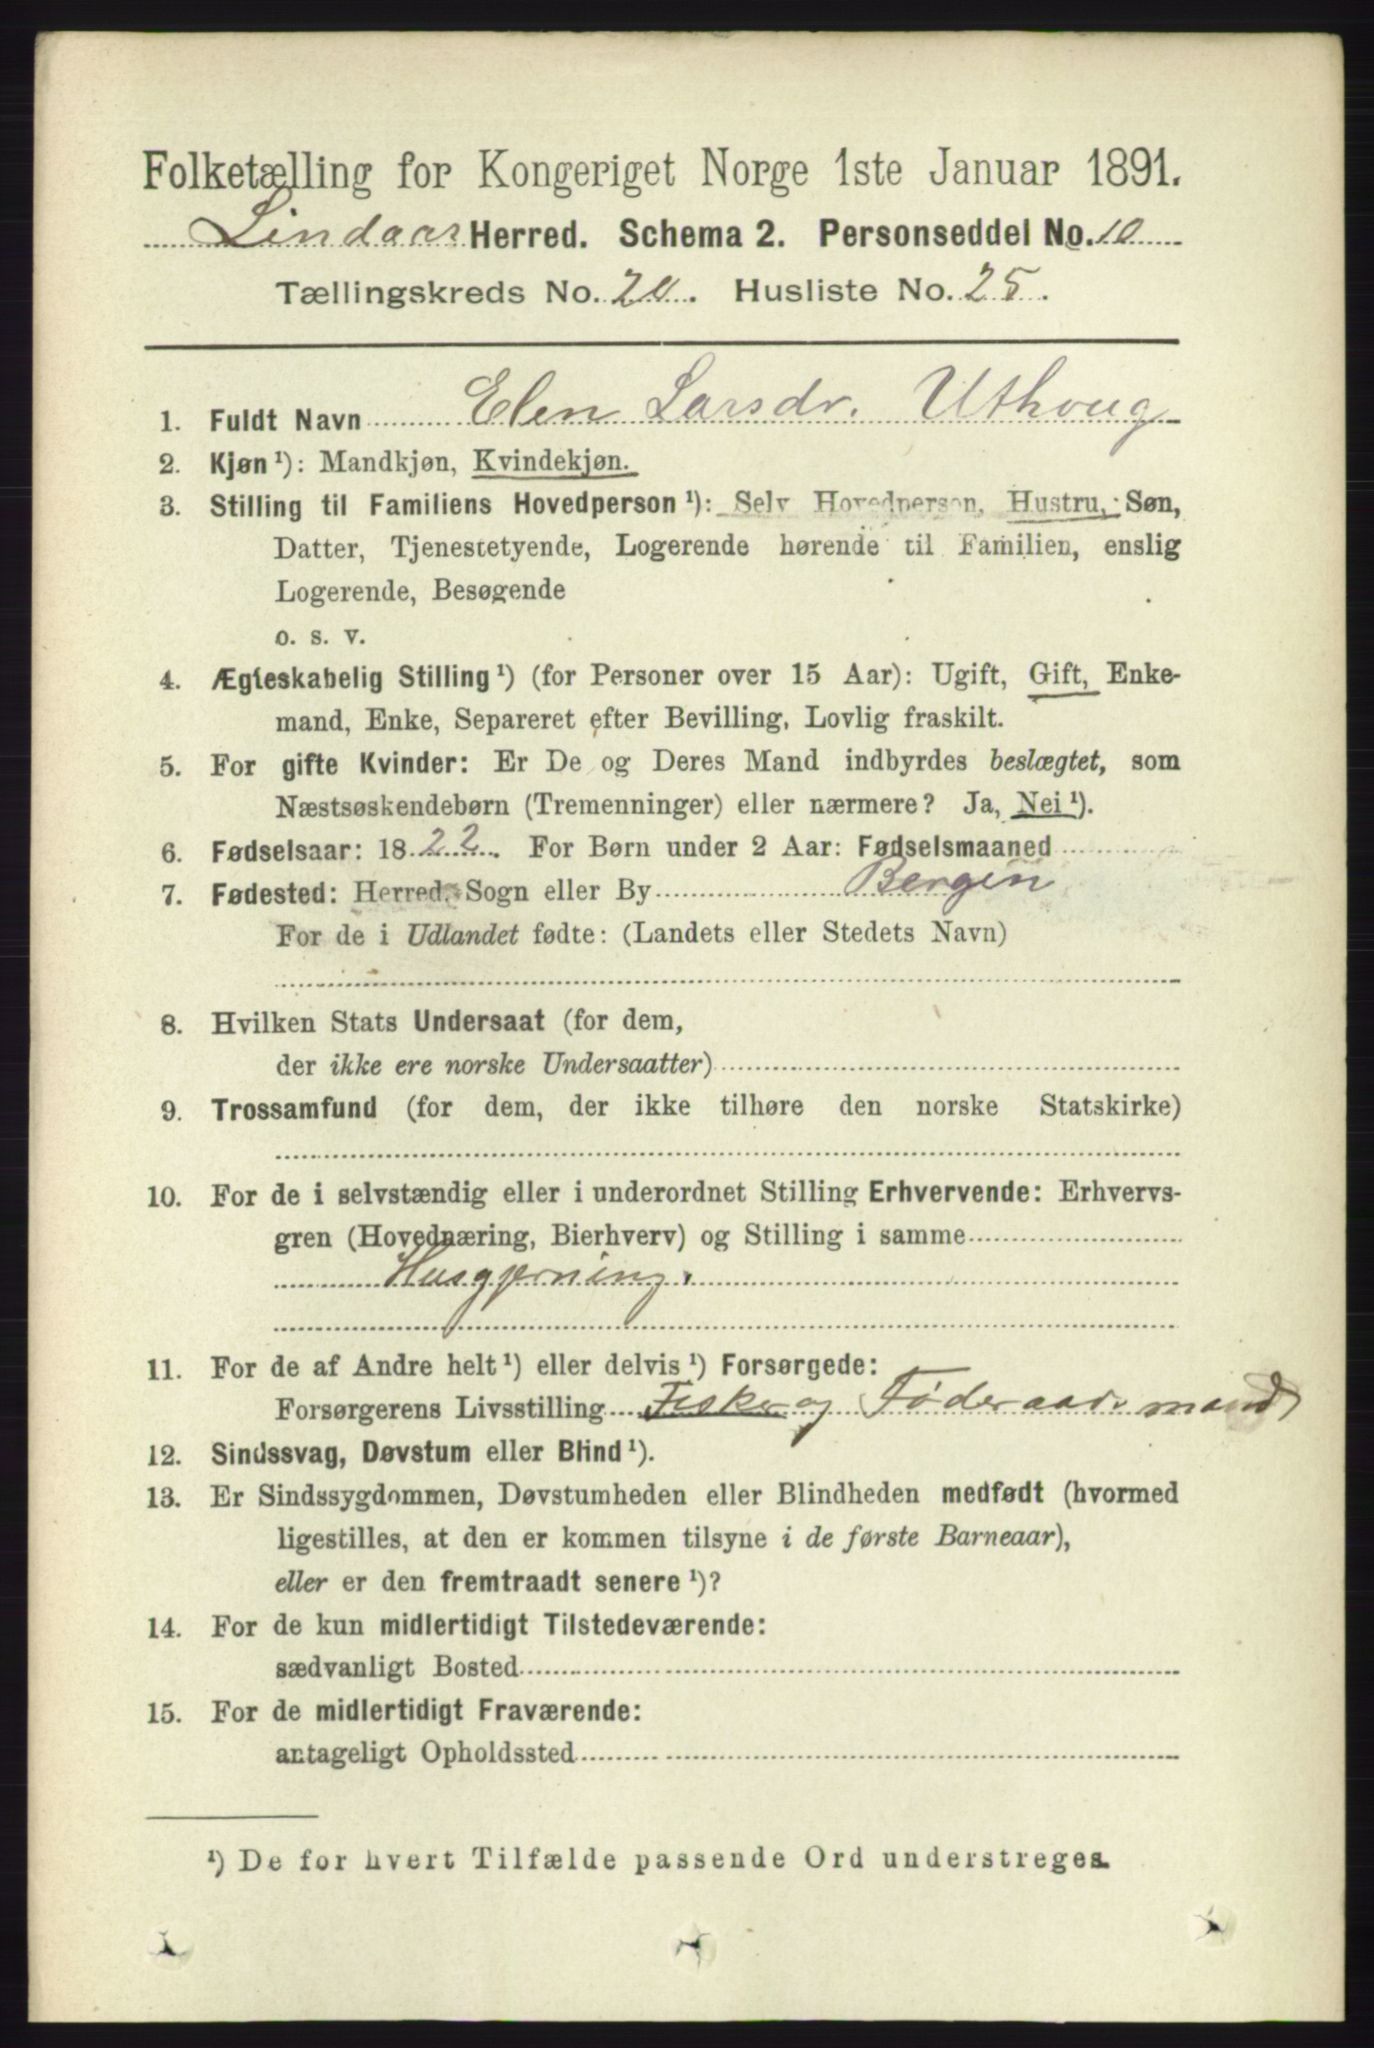 Folketælling for Kongeriget Norge 1ste Januar 1891.
Lindaas Herred. Schema 2. Personseddel No. 10
Tællingskreds No. 20. Husliste No. 25.
1. Fuldt Navn Elen Larsdr. Uthoug
2. Kjøn ¹): Mandkjøn, Kvindekjøn.
3. Stilling til Familiens Hovedperson ¹): Selv Hovedperson, Hustru, Søn,
Datter, Tjenestetyende, Logerende hørende til Familien, enslig
Logerende, Besøgende
o. s. v.
4. Ægteskabelig Stilling ¹) (for Personer over 15 Aar): Ugift, Gift, Enke-
mand, Enke, Separeret efter Bevilling, Lovlig fraskilt.
5. For gifte Kvinder: Er De og Deres Mand indbyrdes beslægtet, som
Næstsøskendebørn (Tremenninger) eller nærmere? Ja, Nei ¹).
6. Fødselsaar: 1822. For Børn under 2 Aar: Fødselsmaaned
7. Fødested: Herred, Sogn eller By Bergen
For de i Udlandet fødte: (Landets eller Stedets Navn)
8. Hvilken Stats Undersaat (for dem,
der ikke ere norske Undersaatter)
9. Trossamfund (for dem, der ikke tilhøre den norske Statskirke)
10. For de i selvstændig eller i underordnet Stilling Erhvervende: Erhvervs-
gren (Hovednæring, Bierhverv) og Stilling i samme
Husgjerning.
11. For de af Andre helt ¹) eller delvis ¹) Forsørgede:
Forsørgerens Livsstilling Fisker og Føderaadsmand
12. Sindssvag, Døvstum eller Blind ¹).
13. Er Sindssygdommen, Døvstumheden eller Blindheden medfødt (hvormed
ligestilles, at den er kommen tilsyne i de første Barneaar),
eller er den fremtraadt senere ¹)?
14. For de kun midlertidigt Tilstedeværende:
sædvanligt Bosted
15. For de midlertidigt Fraværende:
antageligt Opholdssted
¹) De for hvert Tilfælde passende Ord understreges.